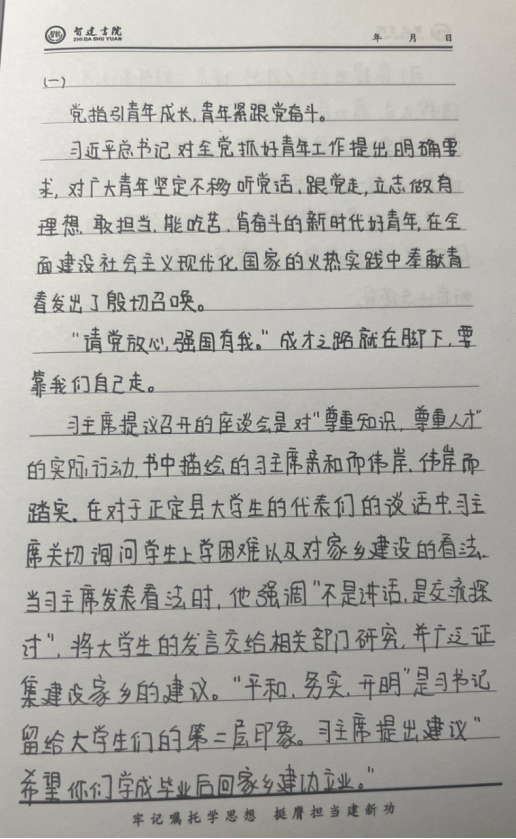 智达书院
ZHI DA SHU YUAN
年 月 日
(一)
党指引青年成长,青年紧跟党奋斗。
习近平总书记对全党抓好青年工作提出明确要
求,对广大青年坚定不移听党话、跟党走,立志做有
理想、敢担当、能吃苦、肯奋斗的新时代好青年,在全
面建设社会主义现代化国家的火热实践中奉献青
春发出了殷切召唤。
“请党放心,强国有我。”成才之路就在脚下,要
靠我们自己走。
习主席提议召开的座谈会是对“尊重知识,尊重人才”
的实际行动,书中描绘的习主席亲和而伟岸,伟岸而
踏实。在对于正定县大学生的代表们的谈话中,习主
席关切询问学生上学困难以及对家乡建设的看法,
当习主席发表看法时,他强调“不是讲话,是交流探
讨”,将大学生的发言交给相关部门研究,并广泛征
集建设家乡的建议。“平和,务实,开明”是习书记
留给大学生们的第二层印象。习主席提出建议“
希望你们学成毕业后回家乡建功立业。”
牢记嘱托学思想 挺膺担当建新功